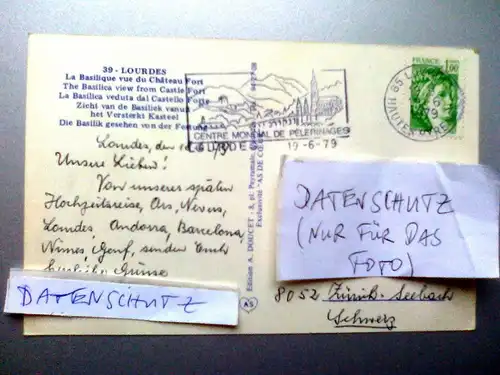 39 - LOURDES
La Basilique vue du Château Fort
The Basilica view from Castle Fort
La Basilica veduta dal Castello Forte
Zicht van de Basiliek vanuit
het Versterkt Kasteel
Die Basilik gesehen von der Festung
CENTRE MONDIAL DE PÈLERINAGES
19-6-79
FRANCE
1,00
Lourdes, den
Unsere Lieben!
Von unserer späten
Hochzeitsreise, Ars, Nevers,
Lourdes, Andorra, Barcelona
Nimes, Genf, senden Euch
herzliche Grüsse
Edition A. DOUCET - 8, pl. Peyramale,
Exclusivité "AS DE CŒUR"
AS
DATENSCHUTZ
(NUR FÜR DAS
FOTO)
DATENSCHUTZ
8052 Zürich-Seebach
Schweiz